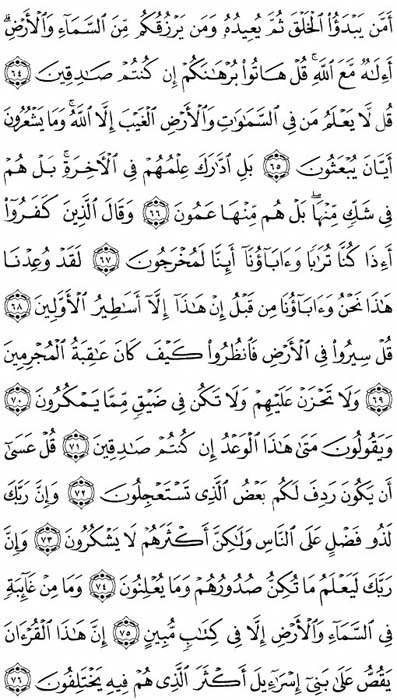 أَمَّن يَبْدَؤُا۟ ٱلْخَلْقَ ثُمَّ يُعِيدُهُۥ وَمَن يَرْزُقُكُم مِّنَ ٱلسَّمَآءِ وَٱلْأَرْضِ ۗ
أَءِلَٰهٌ مَّعَ ٱللَّهِ ۚ قُلْ هَاتُوا۟ بُرْهَٰنَكُمْ إِن كُنتُمْ صَٰدِقِينَ ٦٤
قُل لَّا يَعْلَمُ مَن فِى ٱلسَّمَٰوَٰتِ وَٱلْأَرْضِ ٱلْغَيْبَ إِلَّا ٱللَّهُ ۚ وَمَا يَشْعُرُونَ
أَيَّانَ يُبْعَثُونَ ٦٥ بَلِ ٱدَّٰرَكَ عِلْمُهُمْ فِى ٱلْءَاخِرَةِ ۚ بَلْ هُمْ
فِى شَكٍّ مِّنْهَا ۖ بَلْ هُم مِّنْهَا عَمُونَ ٦٦ وَقَالَ ٱلَّذِينَ كَفَرُوٓا۟
أَءِذَا كُنَّا تُرَٰبًا وَءَابَآؤُنَآ أَئِنَّا لَمُخْرَجُونَ ٦٧ لَقَدْ وُعِدْنَا
هَٰذَا نَحْنُ وَءَابَآؤُنَا مِن قَبْلُ إِنْ هَٰذَآ إِلَّآ أَسَٰطِيرُ ٱلْأَوَّلِينَ ٦٨
قُلْ سِيرُوا۟ فِى ٱلْأَرْضِ فَٱنظُرُوا۟ كَيْفَ كَانَ عَٰقِبَةُ ٱلْمُجْرِمِينَ
٦٩ وَلَا تَحْزَنْ عَلَيْهِمْ وَلَا تَكُن فِى ضَيْقٍ مِّمَّا يَمْكُرُونَ ٧٠
وَيَقُولُونَ مَتَىٰ هَٰذَا ٱلْوَعْدُ إِن كُنتُمْ صَٰدِقِينَ ٧١ قُلْ عَسَىٰٓ
أَن يَكُونَ رَدِفَ لَكُم بَعْضُ ٱلَّذِى تَسْتَعْجِلُونَ ٧٢ وَإِنَّ رَبَّكَ
لَذُو فَضْلٍ عَلَى ٱلنَّاسِ وَلَٰكِنَّ أَكْثَرَهُمْ لَا يَشْكُرُونَ ٧٣ وَإِنَّ
رَبَّكَ لَيَعْلَمُ مَا تُكِنُّ صُدُورُهُمْ وَمَا يُعْلِنُونَ ٧٤ وَمَا مِنْ غَآئِبَةٍ
فِى ٱلسَّمَآءِ وَٱلْأَرْضِ إِلَّا فِى كِتَٰبٍ مُّبِينٍ ٧٥ إِنَّ هَٰذَا ٱلْقُرْءَانَ
يَقُصُّ عَلَىٰ بَنِىٓ إِسْرَٰٓءِيلَ أَكْثَرَ ٱلَّذِى هُمْ فِيهِ يَخْتَلِفُونَ ٧٦